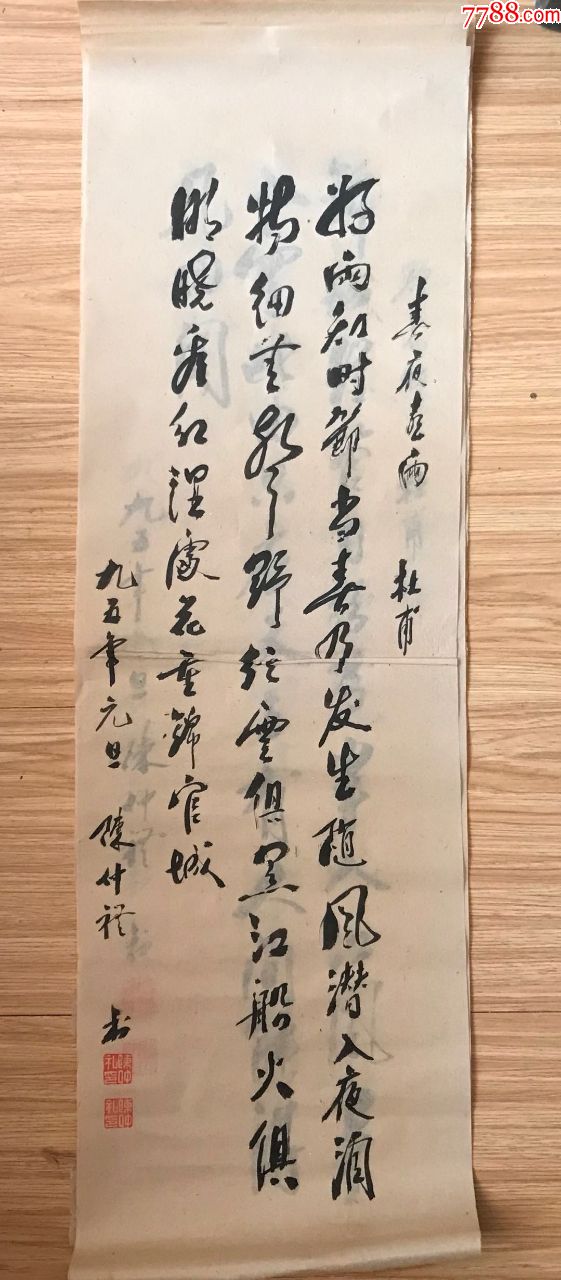 7788.com
春夜喜雨 杜甫
好雨知时節当春乃发生随風潜入夜润
物细無聲野径雲俱黑江船火俱
明晓看红湿處花重錦官城
九五年元旦 陳仲礼